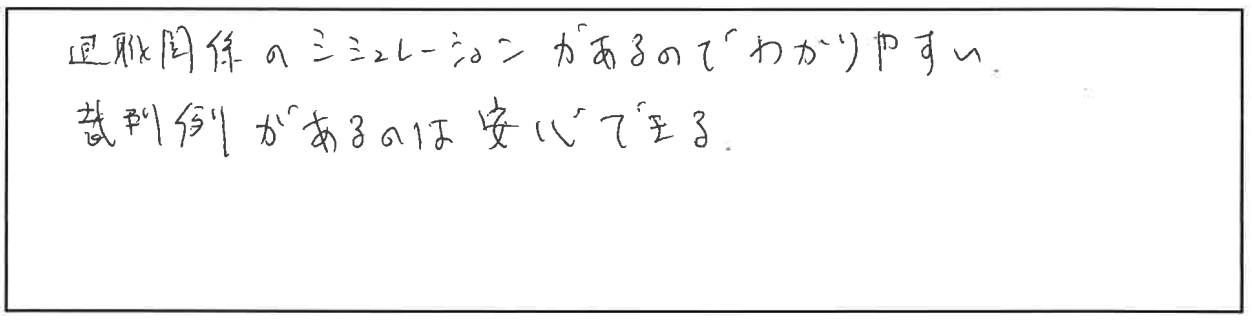 退職関係のシミュレーションがあるのでわかりやすい.
裁判例があるのは安心できる.